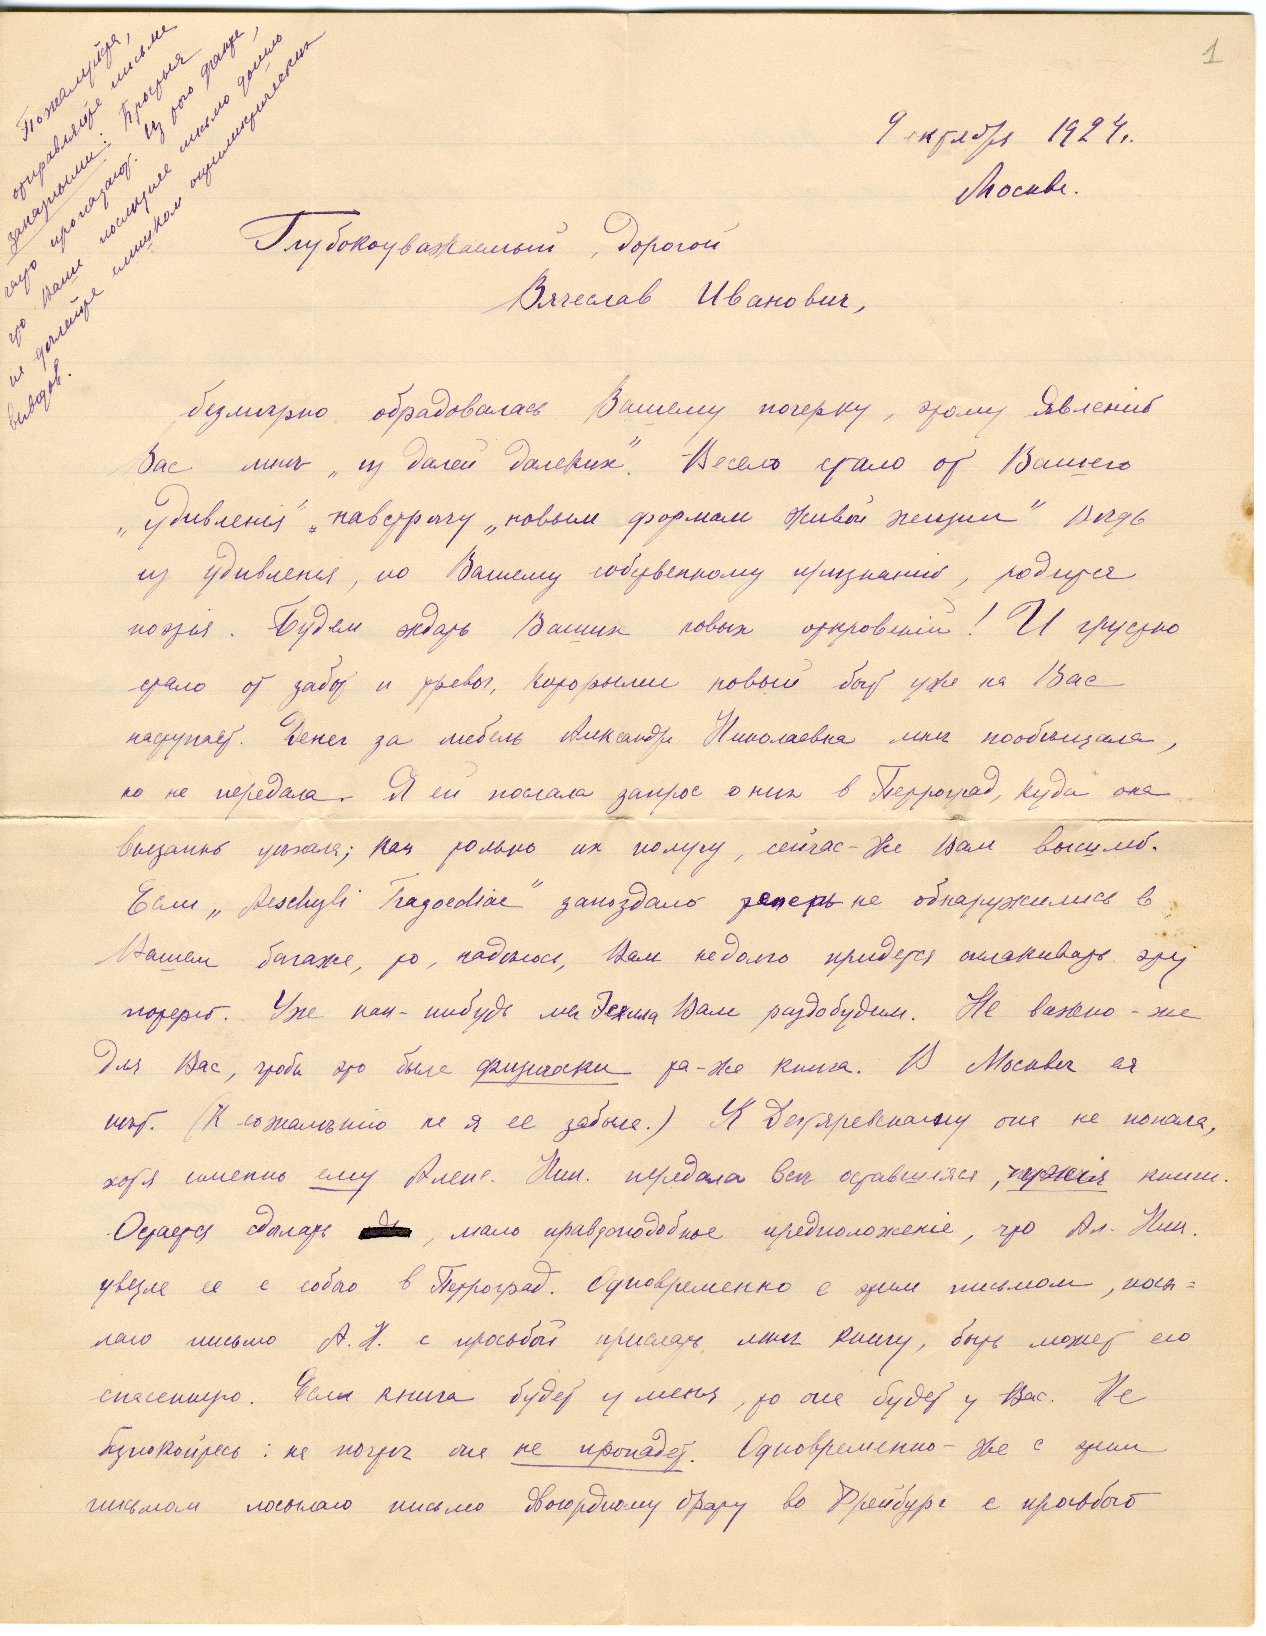 1
Пожалуйста,
отправляйте письма
заказными: Простыя
часто пропадают. Из того факта,
что Ваше последнее письмо дошло
не делайте слишком оптимистических
выводов.
9 октября 1924 г.
Москва.
Глубокоуважаемый, дорогой
Вячеслав Иванович,
безмѣрно обрадовалась Вашему почерку, этому явленію
Вас мнѣ „из далей далеких". Весело стало от Вашего
„удивленія" навстрѣчу „новым формам живой жизни" Вѣдь
из удивленія, по Вашему собственному признанію, родится
поэзія. Будем ждать Ваших новых откровеній! И грустно
стало от забот и тревог, которыми новый быт уже на Вас
наступает. Денег за мебель Александра Николаевна мнѣ пообѣщала,
но не передала. Я ей послала запрос о них в Петроград, куда она
внезапно уѣхала; как только их получу, сейчас-же Вам вышлю.
Если „Aeschyli Tragoediae" запоздало теперь не обнаружились в
Вашем багаже, то, надѣюсь, Вам недолго придется оплакивать эту
потерю. Уже как-нибудь мы Эсхила Вам раздобудем. Не важно-же
для Вас, чтобы это была физически та-же книга. В Москвѣ ея
нѣт. (К сожалѣнію не я ее забыла.) К Дегтяревскому она не попала,
хотя именно ему Алекс. Ник. передала всѣ оставшіяся, чужія книги.
Остается сдѣлать, мало правдоподобное предположеніе, что Ал. Ник.
увезла ее с собою в Петроград. Одновременно с этим письмом, посы=
лаю письмо А. Н. с просьбой прислать мнѣ книгу, быть может ею
спасенную. Если книга будет у меня, то она будет у Вас. Не
безпокойтесь: на почтѣ она не пропадет. Одновременно-же с этим
письмом посылаю письмо двоюродному брату во Фрейбург с просьбою